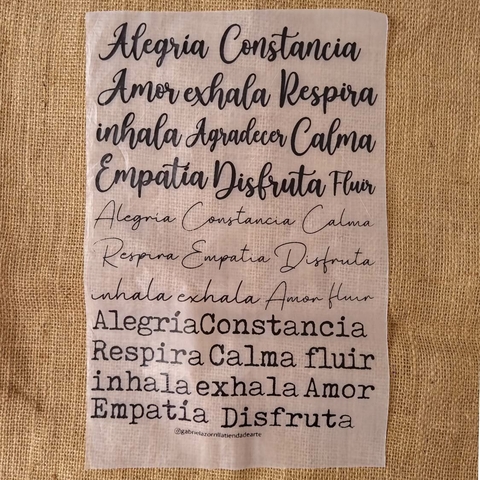 Alegría Constancia
Amor exhala Respira
inhala Agradecer Calma
Empatía Disfruta Fluir
Alegria Constancia Calma
Respira Empatia Disfruta
inhala exhala Amor fluir
Alegría Constancia
Respira Calma fluir
inhala exhala Amor
Empatía Disfruta
@gabrielazorrillatiendadearte